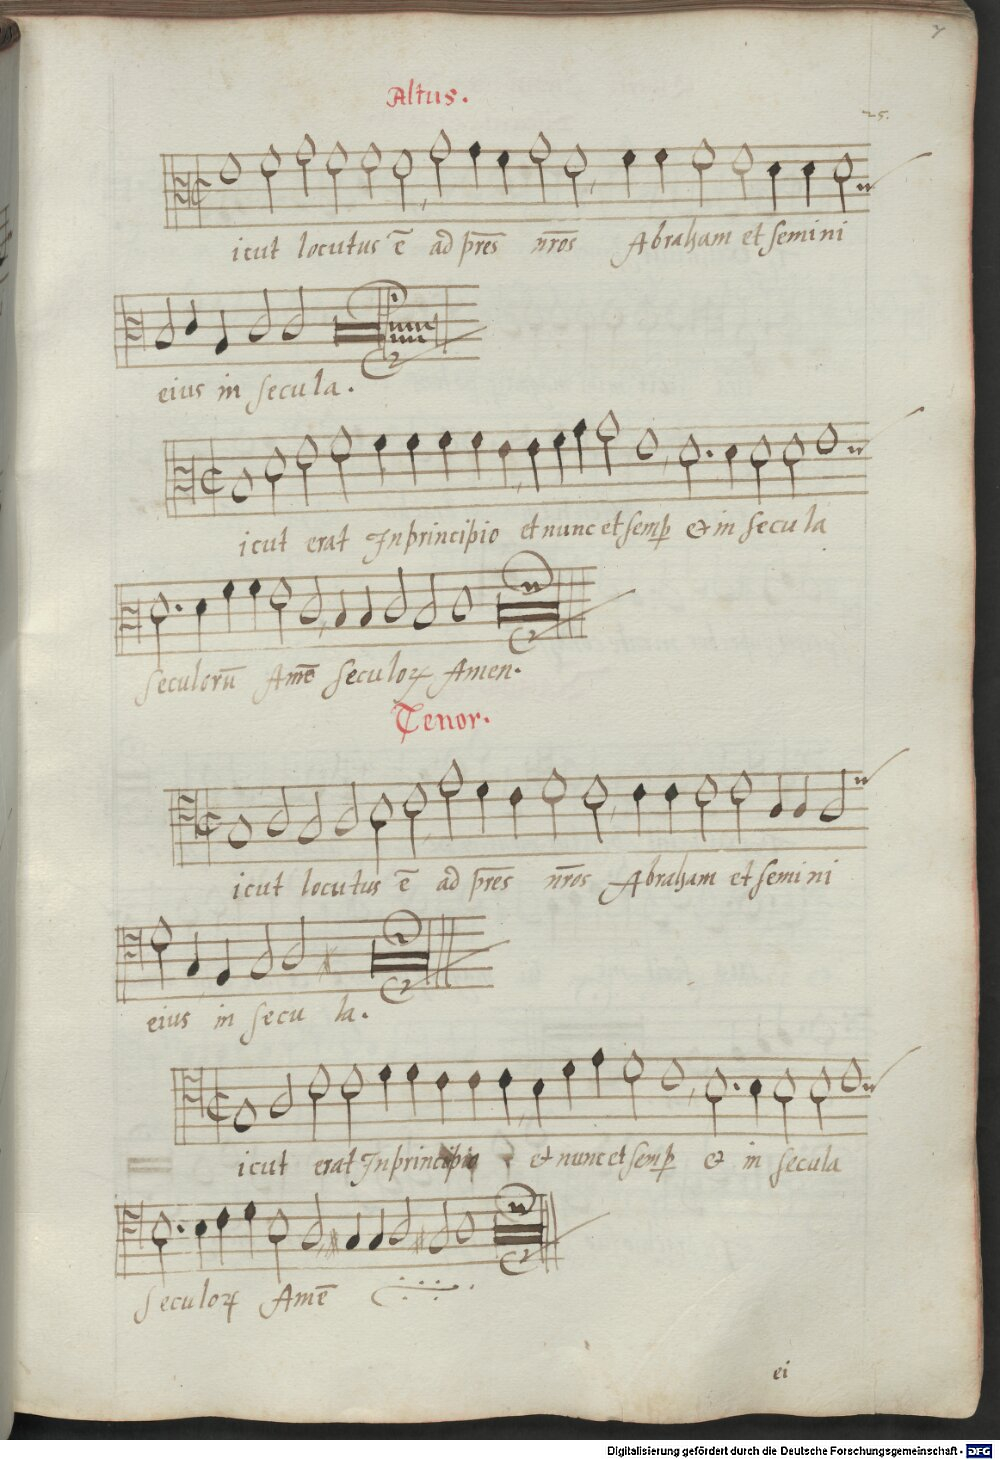 25.
Altus.
icut locutus ē ad p̄res n̄ros Abraham et semini
eius in secula.
icut erat Inprincipio et nunc et semꝑ & in secula
seculorū Amē seculoꝝ Amen.
Tenor.
icut locutus ē ad p̄res n̄ros Abraham et semini
eius in secu la.
icut erat Inprincipio et nunc et semꝑ & in secula
seculoꝝ Amē
ei
Digitalisierung gefördert durch die Deutsche Forschungsgemeinschaft - DFG